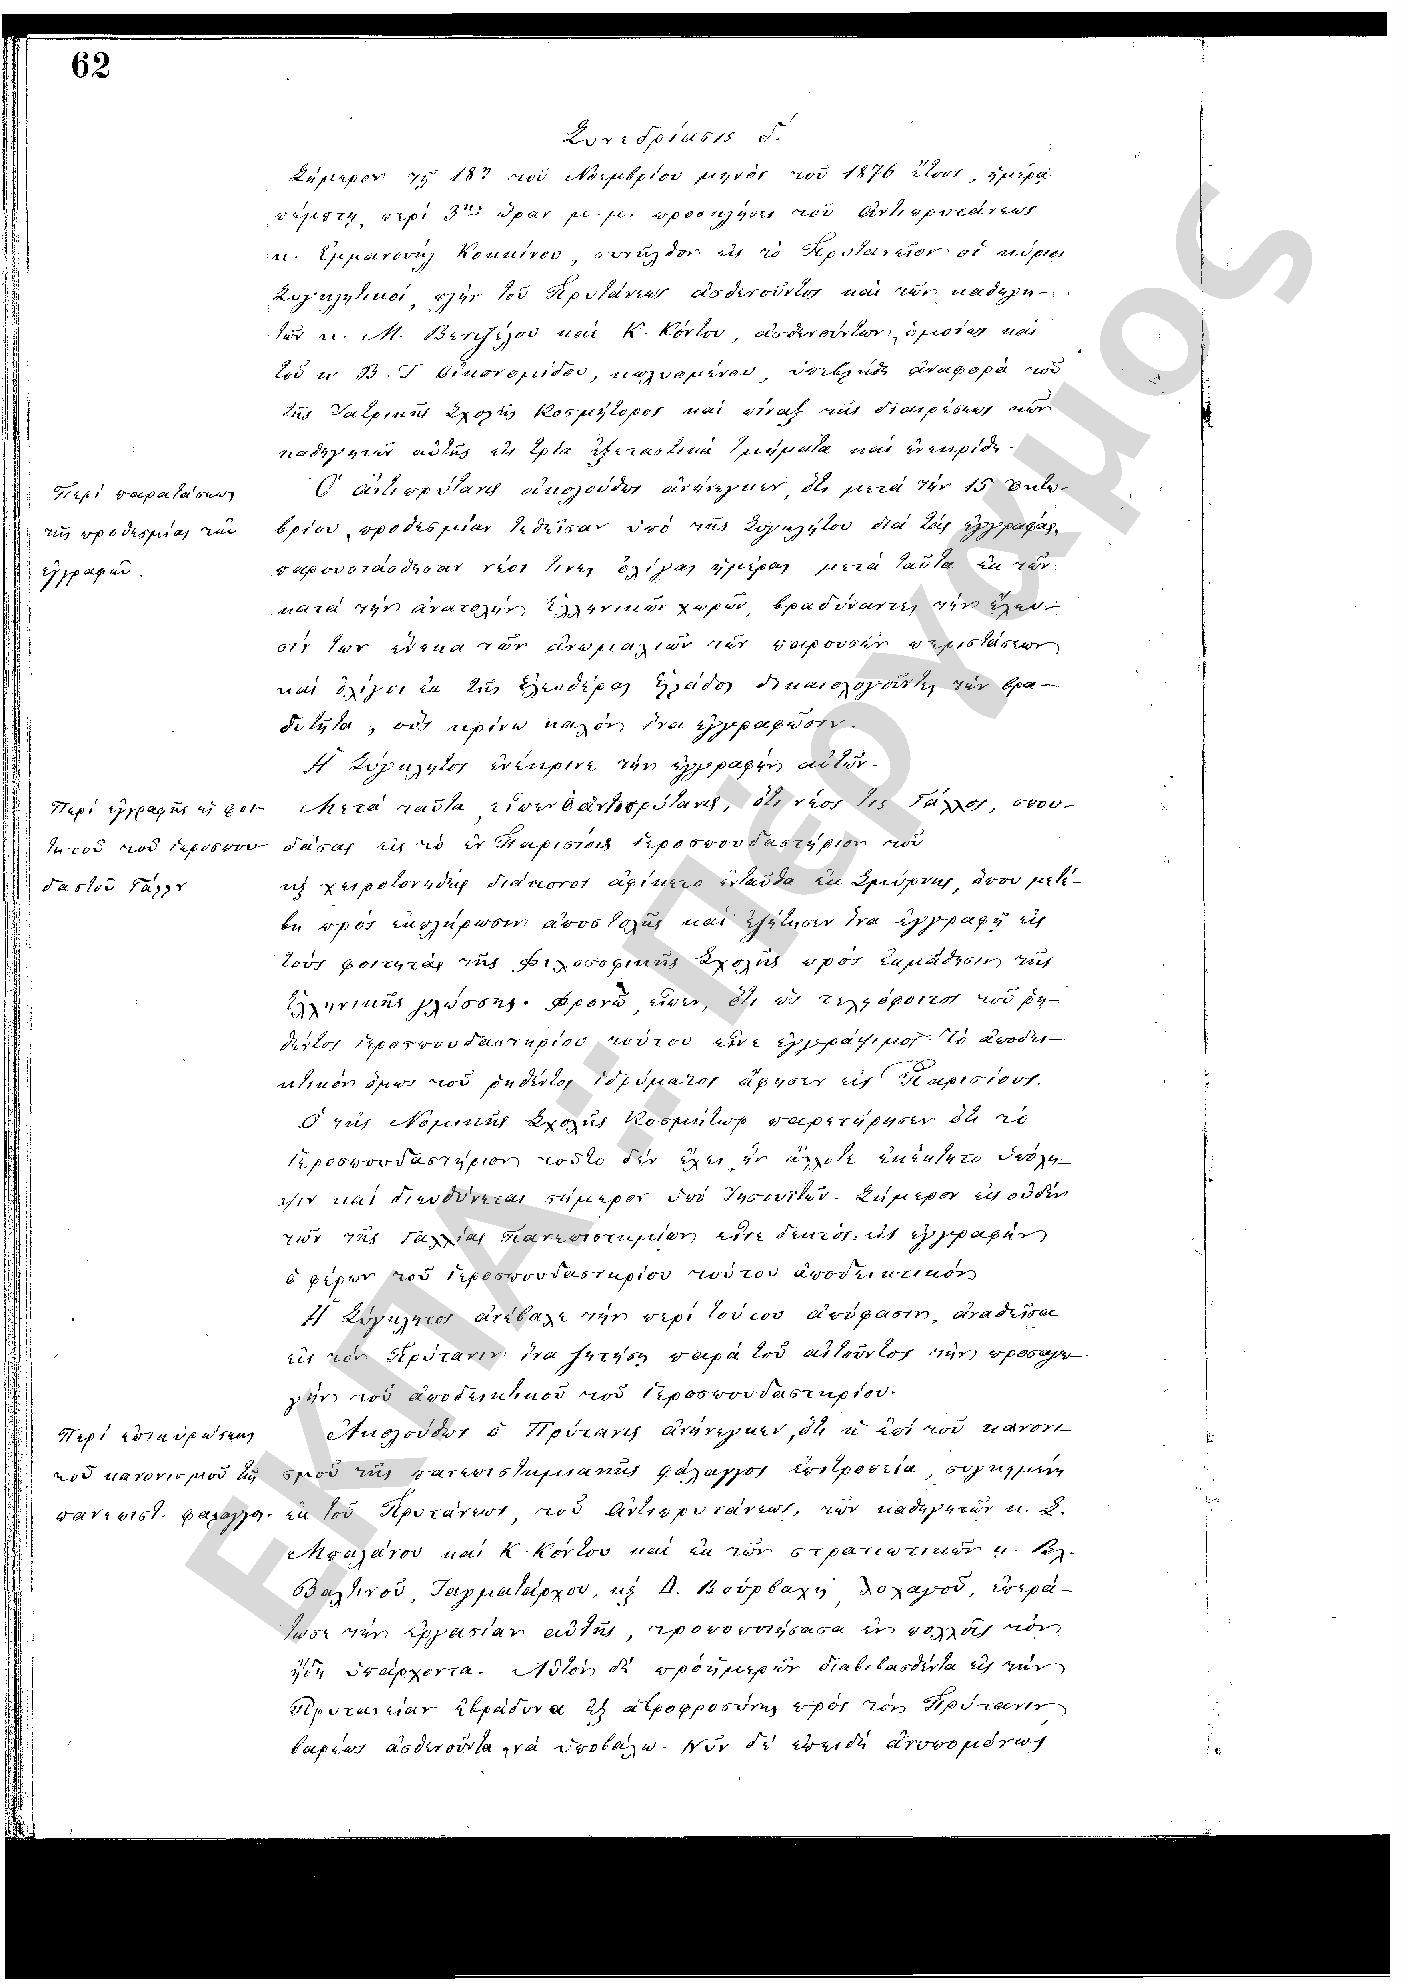 62
Συνεδρίασις δ΄.
Σήμερον τῇ 18ῃ τοῦ Νοεμβρίου μηνὸς τοῦ 1876 ἔτους, ἡμέρᾳ
πέμπτῃ, περὶ 3ην ὥραν μ. μ. προσκλήσει τοῦ Ἀντιπρυτάνεως
κ. Ἐμμανουὴλ Κοκκίνου, συνῆλθον εἰς τὸ Πρυτανεῖον οἱ κύριοι
Συγκλητικοί, πλὴν τοῦ Πρυτάνεως ἀσθενοῦντος καὶ τῶν καθηγη-
τῶν κ. Μ. Βενιζέλου καὶ Κ. Κόντου, ἀσθενούντων ὁμοίως καὶ
τοῦ κ. Β. Γ Οἰκονομίδου, κωλυομένου, ὑπεβλήθη ἀναφορὰ τοῦ
τῆς Ἰατρικῆς Σχολῆς Κοσμήτορος καὶ πίναξ τῆς διαιρέσεως τῶν
καθηγητῶν αὐτῆς εἰς τρία ἐξεταστικὰ τμήματα καὶ ἐνεκρίθη.
Περὶ παρατάσεως
τῆς προθεσμίας τῶν
ἐγγραφῶν.
Ὁ ἀντιπρύτανις ἀκολούθως ἀνήνεγκεν, ὅτι μετὰ τὴν 15 Ὀκτω-
βρίου, προθεσμίαν τεθεῖσαν ὑπὸ τῆς Συγκλήτου διὰ τὰς ἐγγραφάς,
παρουσιάσθησαν νέοι τινες ὀλίγας ἡμέρας μετὰ ταῦτα ἐκ τῶν
κατὰ τὴν ἀνατολὴν Ἑλληνικῶν χωρῶν, βραδύναντες τὴν ἔλευ-
σίν των ἕνεκα τῶν ἀνωμαλιῶν τῶν παρουσῶν περιστάσεων
καὶ ὀλίγοι ἐκ τῆς ἐλευθέρας Ἑλλάδος δικαιολογοῦντες τὴν βρα-
δύτητα, οὓς κρίνω καλὸν ἵνα ἐγγραφῶσιν.
Ἡ Σύγκλητος ἐνέκρινε τὴν ἐγγραφὴν αὐτῶν.
Περὶ ἐγγραφῆς εἰς φοι-
τητοῦ τοῦ ἱεροσπου-
δαστοῦ Γάλλου
Μετὰ ταῦτα εἶπεν ὁ ἀντιπρύτανις, ὅτι νέος τις Γάλλος, σπου-
δάσας εἰς τὸ ἐν Παρισίοις ἱεροσπουδαστήριον τοῦ
κὴ χειροτονηθεὶς διάκονος ἀφίκετο ἐνταῦθα ἐκ Σμύρνης, ὅπου μετέ-
βη πρὸς ἐκπλήρωσιν ἀποστολῆς καὶ ἐζήτησεν ἵνα ἐγγραφῇ εἰς
τοὺς φοιτητὰς τῆς Φιλοσοφικῆς Σχολῆς πρὸς ἐκμάθησιν τῆς
Ἑλληνικῆς γλώσσης. Φρονῶ, εἶπεν, ὅτι ὡς τελειόφοιτος τοῦ ῥη-
θέντος ἱεροσπουδαστηρίου τούτου εἶνε ἐγγράψιμος. Τὸ ἀποδει-
κτικὸν ὅμως τοῦ ῥηθέντος ἱδρύματος ἄφησεν εἰς Παρισίους.
Ὁ τῆς Νομικῆς Σχολῆς Κοσμήτωρ παρετήρησεν ὅτι τὸ
ἱεροσπουδαστήριον τοῦτο δὲν ἔχει ἣν ἄλλοτε ἐκέκτητο ὑπόλη-
ψιν καὶ διευθύνεται σήμερον ὑπὸ Ἰησουιτῶν. Σήμερον εἰς οὐδὲν
τῶν τῆς Γαλλίας Πανεπιστημίων εἶνε δεκτὸς εἰς ἐγγραφὴν
ὁ φέρων τοῦ ἱεροσπουδαστηρίου τούτου ἀποδεικτικόν
Ἡ Σύγκλητος ἀνέβαλε τὴν περὶ τούτου ἀπόφασιν, ἀναθεῖσα
εἰς τὸν Πρύτανιν ἵνα ζητήσῃ παρὰ τοῦ αἰτοῦντος τὴν προσαγω-
γὴν τοῦ ἀποδεικτικοῦ τοῦ ἱεροσπουδαστηρίου.
Περὶ ἐπικυρώσεως
τοῦ κανονισμοῦ τῆς
πανεπιστ. φάλαγγος.
Ἀκολούθως ὁ Πρύτανις ἀνήνεγκεν, ὅτι ἡ ἐπὶ τοῦ κανονι-
σμοῦ τῆς πανεπιστημιακῆς φάλαγγος ἐπιτροπεία, συγκειμένη
ἐκ τοῦ Πρυτάνεως, τοῦ ἀντιπρυτάνεως, τῶν καθηγητῶν κ. Σ.
Μπαλάνου καὶ Κ. Κόντου καὶ ἐκ τῶν στρατιωτικῶν κ.
Βαλτινοῦ, Ταγματάρχου, κὴ Δ. Βούρβαχη λοχαγοῦ, ἐπερά-
τωσε τὴν ἐργασίαν αὐτῆς, τροποποιήσασα ἐν πολλοῖς τὸν
ἤδη ὑπάρχοντα. Αὐτὸν δὲ πρὸ ἡμερῶν διαβιβασθέντα εἰς τὴν
Πρυτανείαν ἐβράδυνα ἐξ ἁβροφροσύνης πρὸς τὸν Πρύτανιν
βαρέως ἀσθενοῦντα νὰ ὑποβάλω. Νῦν δὲ ἐπειδὴ ἀνυπομόνως
ΕΚΠΑ.: Πέργαμος